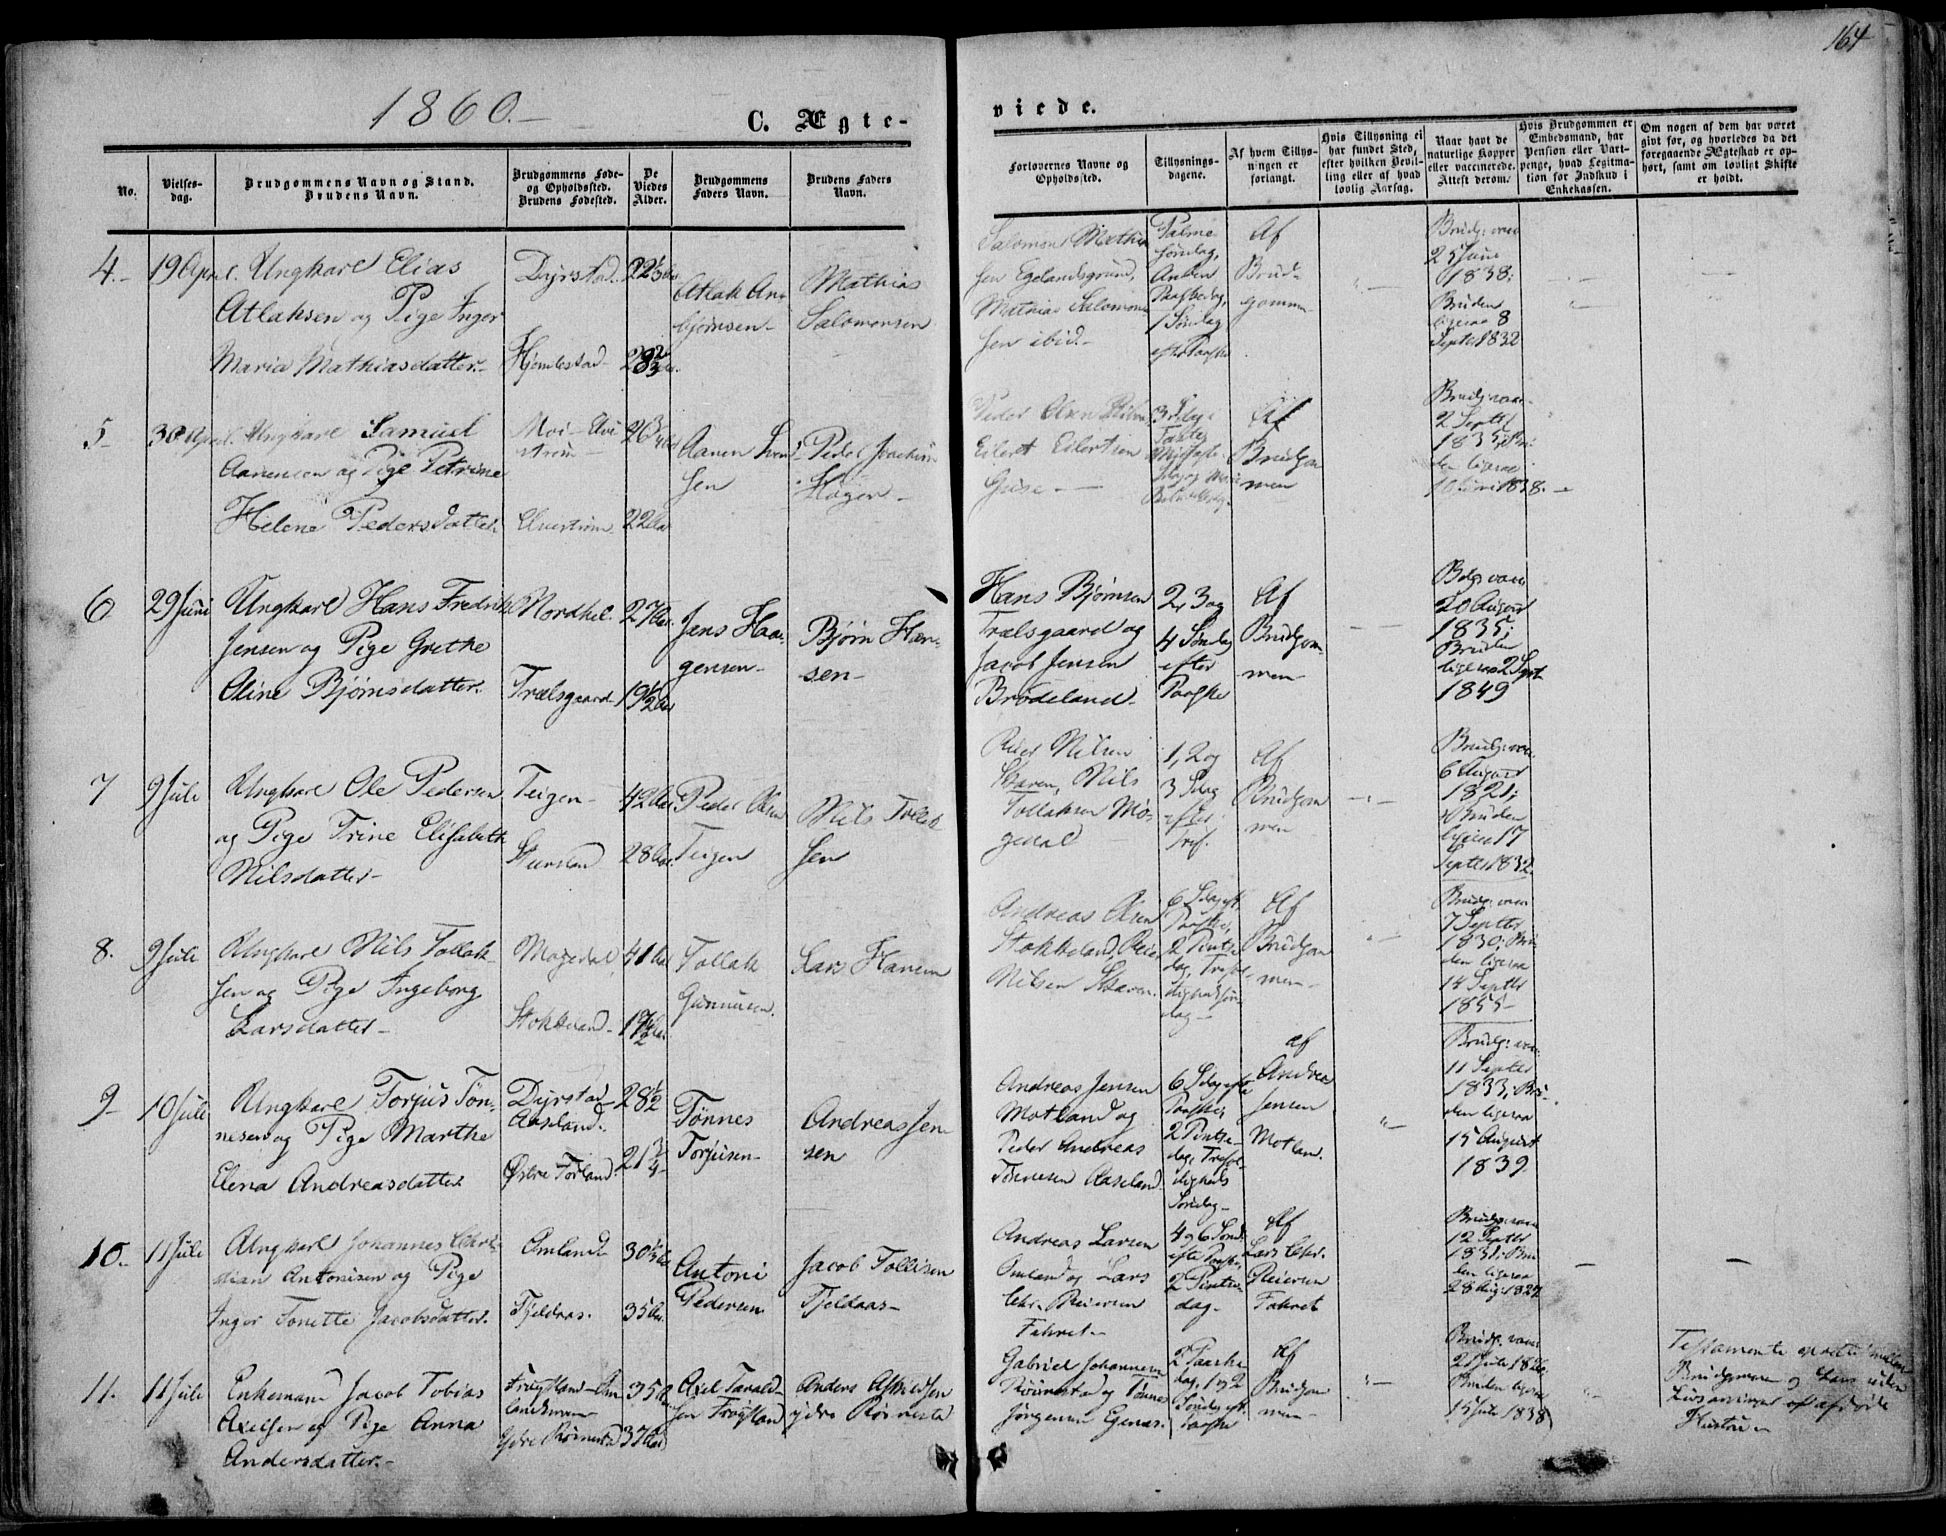 164
1860.-
C. Ægte-
viede.
No.
Vielses-
dag.
Brudgommens Navn og Stand.
Brudens Navn.
Brudgommens Føde-
og Opholdssted.
Brudens Fødested.
De
Viedes
Alder.
Brudgommens
Faders Navn.
Brudens Faders
Navn.
Forlovernes Navne og
Opholdssted.
Tillysnings-
dagene.
Af hvem Tillys-
ningen er
forlangt.
Hvis Tillysning ei
har fundet Sted,
efter hvilken Bevil-
ling eller af hvad
lovlig Aarsag.
Naar havt de
naturlige Kopper
eller vaccinerede.
Attest derom.
Hvis Brudgommen er
Embedsmand, har
Pension eller Vart-
penge, hvad Legitima-
tion for Indskud i
Enkekassen.
Om nogen af dem har været
givt før, og hvorledes da det
foregaaende Ægteskab er op-
hørt, samt om lovligt Skifte
er holdt.
4.-
19 April.
Ungkarl Elias
Atlaksen og Pige Inger
Maria Mathiasdatter.-
Dyrstad.
Hjemlestad-
22 1/3
28 2/3
Atlak An-
bjørnsen-
Mathias
Salomonsen
Salomon Mathia
sen Egelandsgrund,
Mathias Salomon
sen ibid.-
Palme
søndag,
Anden
Paaskedag,
1 Søndag
efter Paaske
Af
Brud-
gomm-
Brudg: vacc
25 Juni
1838;
Bruden
ligesaa 8
Septb 1832
5-
30 April.
Ungkarl Samuel
Aanensen og Pige Petrine
Helene Pedersdatter
Moi-
26 3/4
22 Aar
Aanen Svend-
sen
Peder Joachim
Hagen-
Peder Olsen
Eilert Eilertsen
3 Sdag i
Faste
Af
Brudgom
men
Brudg: vacc-
2 Septb
1835; Bru
den ligesaa
10 Juni 1838.-
6
29 Juni
Ungkarl Hans Fredrik
Jensen og Pige Grethe
Oline Bjørnsdatter.
Nordhel.
Trælsgaard-
27 Aar.
19 1/2 Aar
Jens Haa-
gensen-
Bjørn Han-
sen-
Hans Bjørnsen
Trælsgaard og
Jacob Jensen
Brødeland-
2, 3 og
4 Søndag
efter
Paaske
Af
Brudgom-
men-
Bdg: vacc
20 August
1835;
Bruden
ligesaa 2 Sept
1849
7
9 Juli
Ungkarl Ole Pedersen
og Pige Trine Elisabeth
Nilsdatter-
Teigen-
42 Aar.
28 Aar.
Peder Olsen
Teigen
Nils Tollak
sen
Peder Nilsen
Skaven, Nils
Tollaksen Mø-
gedal
1, 2 og
3 Sdag
efter
Tref.
Af
Brudgom
men-
Brudg: vacc
6 August
1821;
Bruden
ligesaa 17
Septbr 1832
8.
9 Juli
Ungkarl Nils Tollak-
sen og Pige Ingeborg
Larsdatter-
Møgedal
Stokkeland-
41 Aar
19 1/2 Aar
Tollak
Gunnusen.
Lars Hansen
Andreas Olsen
Stokkeland, Peder
Nilsen Skaven.
6 Sdag eft.
Paaske,
2 Pintse-
dag, Trefol-
dighedssøn
dag-
Af
Brudgom
men-
Brudg: vacc
7 Septbr
1830; Bru
den ligesaa
14 Septbr
1855-
9-
10 Juli
Ungkarl Torjus Tøn-
nesen og Pige Marthe
Elena Andreasdatter
Dyrstad-
Aaseland.
Østre Førland.
28 1/2
21 3/4
Tønnes
Torjusen-
Andreas Jen
sen
Andreas Jensen
Motland og
Peder Andreas
Tønnesen Aaseland.
6 Sdag efter
Paaske,
2 Pintse-
dag, Trefol-
digheds
Søndag-
af
Andrea
Jensen
Motlan.
Brudg: vacc
11 Septbr
1833, Bru-
den ligesaa
15 August
1839
10.-
11 Juli
Ungkarl Johannes Chri-
stian Antonisen og Pige
Inger Tonette Jacobsdatter.
Omland-
Fjeldaas.
30 1/3
35 Aar.
Antoni
Pedersen.
Jacob Tollisen
Fjeldaas-
Andreas Larsen
Omland og Lars
Chr. Reiersen
4 og 6 Sønd
efter Paaske,
2 Pintse-
dag-
Af
Lars Chr.
Reiersen
Brudg: vacc
12 Septbr
1831; Bru
den ligesaa
28 Aug: 1827
11.
11 Juli
Enkemand Jacob Tobias
Axelsen og Pige Anna
Andersdatter.-
35 Aar
37 Aar
Axel Tarald-
sen Frøysland
Anders Aslaksen
ydre Rørneste
Gabriel Johannesen
Rørnestad og Tønnes
Jørgensen
2 Paaske
dag, 1 og 2
Søndag eft.
Paaske
Af
Brudgom
men-
Brudg: vacc
21 Juli 1826,
Bruden ligesaa
15 Juli 1838
Testamente oprettet mellem
Brudgommen og hans
afdøde
Hustru-